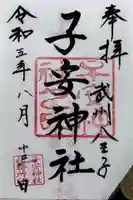 奉拝
武州八王子
子安神社
令和五年八月